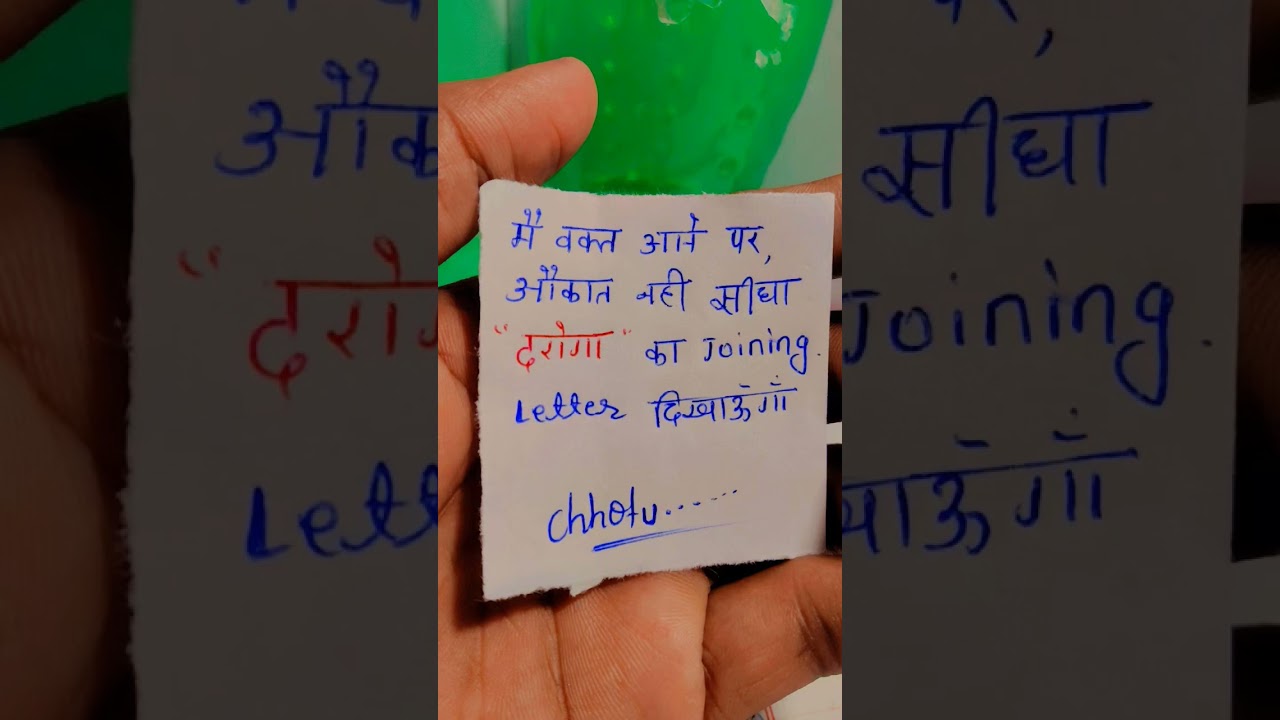 मैं वक्त आने पर,
औकात नही सीधा
"दरोगा" का Joining.
Letter दिखाऊँगाँ
chhotu.......